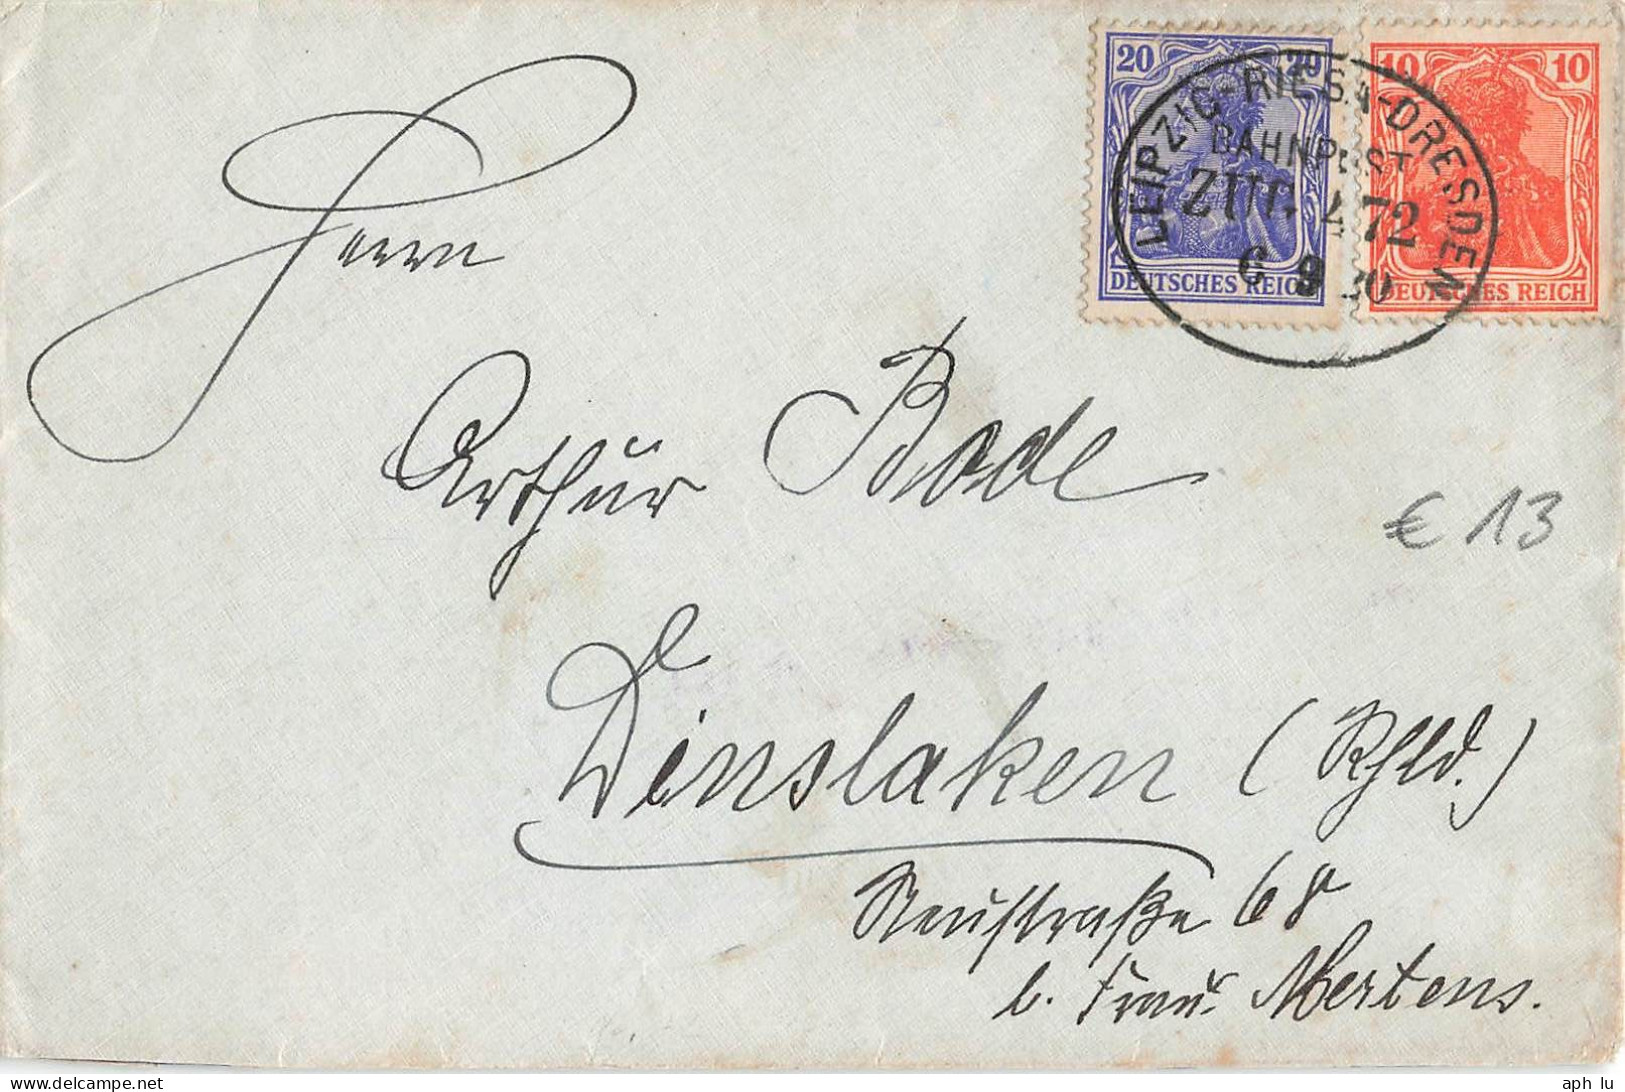 20 20
DEUTSCHES REICH
10 10
DEUTSCHES REICH
LEIPZIG-RIESA-DRESDEN
BAHNPOST
ZUG 472
6 9 20
Herrn
Arthur Bode
€ 13
Dinslaken (Rhld.)
Neustraße 68
b. Frau Mertens.
aph_lu
delcampe.net